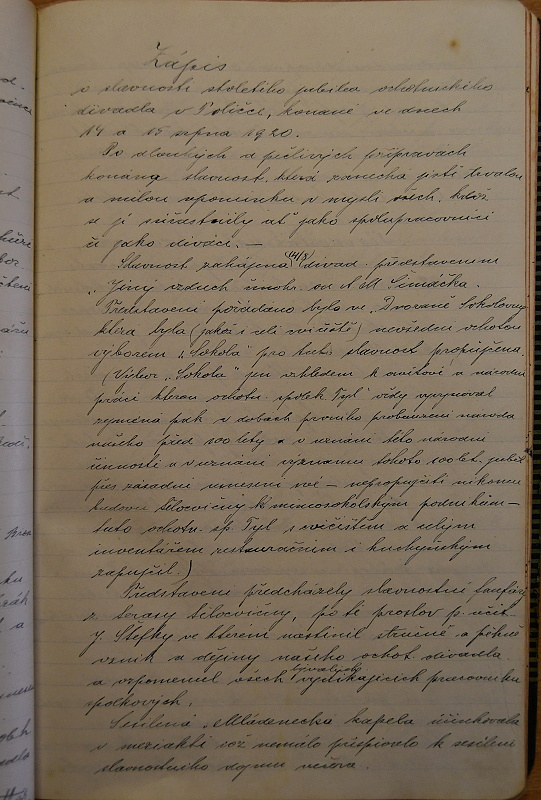 Zápis
o slavnosti stoletého jubilea ochotnického
divadla v Poličce, konané ve dnech
14 a 15 srpna 1920.
Po dlouhých a pečlivých přípravách
konána slavnost, která zanechá jistě trvalou
a milou vzpomínku v mysli všech, kdož
se jí súčastnily ať jako spolupracovníci
či jako diváci. —
Slavnost zahájena (14/8) divad. představením
„Jiný vzduch" činoh. od A M Šimáčka.
Představení pořádáno bylo ve „Dvoraně Sokolovny"
která byla (jakož i celé cvičiště) nevšední ochotou
výborem „Sokola" pro tuto slavnost propůjčena.
(Výbor „Sokola" jen vzhledem k osvětové a národní
práci kterou ochotn. spolek „Tyl" vždy vyvynoval
zejména pak v dobách prvního probuzení národa
našeho před 100 léty a v uznání této národní
činnosti a v uznání významu tohoto 100 let. jubil
přes zásadní usnesení své — nepropůjčiti nikomu
budovu tělocvičny k mimosokolským podnikům —
tuto ochotn. sp. Tyl s cvičištěm a celým
inventářem restauračním i kuchyňským
zapůjčil.)
Představení předcházely slavnostní fanfáry
z terasy tělocvičny, po té proslov p. učit.
J. Štefky ve kterém nastínil stručně a pěkně
vznik a dějiny našeho ochot. divadla
a vzpomenul všech bývalých vynikajících pracovníků
spolkových.
Sesílená „Mládenecká kapela účinkovala
v meziaktí což nemálo přispívalo k sesílení
slavnostního dojmu večera.